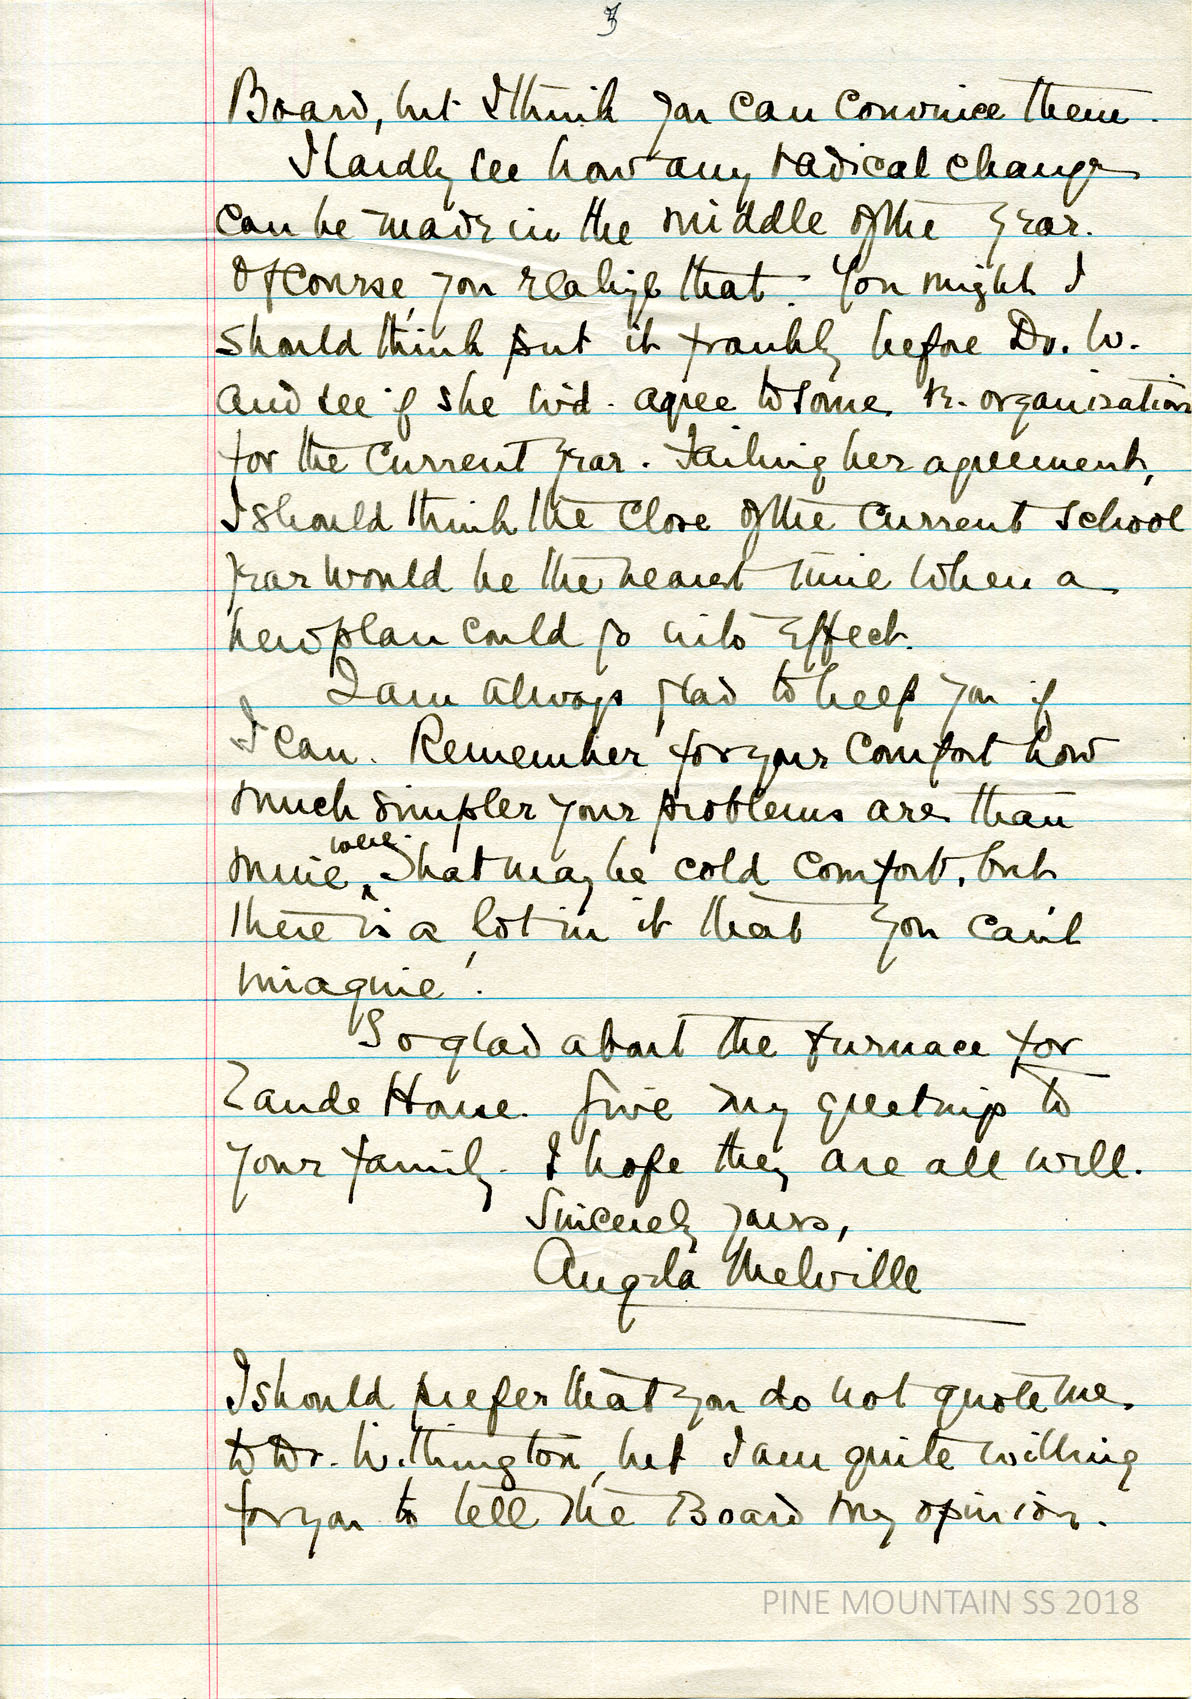 3
Board, but I think you can convince them.
I hardly see how any radical change
can be made in the middle of the year.
Of course, you realize that. You might I
should think put it frankly before Dr. W.
and see if she w'd. agree to some re-organization
for the current year. Failing her agreement,
I should think the close of the current school
year would be the nearest time when a
new plan could go into effect.
I am always glad to help you if
I can. Remember for your comfort how
much simpler your problems are than
mine were. That may be cold comfort, but
there is a lot in it that you can't
imagine!
So glad about the furnace for
Zande House. Give my greetings to
your family. I hope they are all well.
Sincerely yours,
Angela Melville
I should prefer that you do not quote me
to Dr. Withington, but I am quite willing
for you to tell the Board my opinion.
PINE MOUNTAIN SS 2018